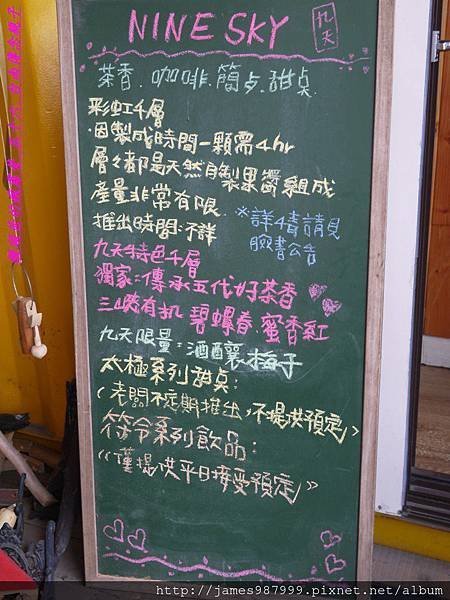 NINE SKY 九天
茶香.咖啡.簡点.甜桌
彩虹千層
·因製成時間一顆需4hr
層々都是天然自製果醬組成
產量非常有限
推出時間:不詳
※詳情請見
臉書公告
九天特色千層
獨家=傳承五代好茶香
三峽有机 碧螺春.蜜香紅
九天限量=酒釀梅子
太極系列甜桌:
(老闆不定期推出,不提供預定>
符令系列飲品:
《僅提供平日接受預定》
http://james987999.pixnet.net/album